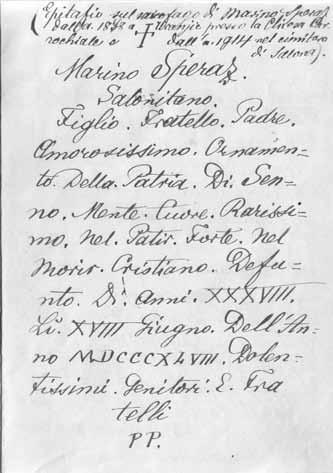 (Epitafio sul sarcofago di Marino Speraz
dall'a. 1848 a Vranjic presso la Chiesa Par
rochiale e dall'a. 1914 nel cimitero
di Salona).
Marino Speraz.
Salonitano.
Figlio. Fratello. Padre.
Amorosissimo. Ornamen=
to. Della. Patria. Di. Sen=
no. Mente. Cuore. Rarissi=
mo. Nel. Patir. Forte. Nel
Morir. Cristiano. Defu=
nto. Di. Anni. XXXVIII.
Li. XVIII Giugno. Dell'An=
no MDCCCXLVIII. Dolen=
tissimi. Genitori. E. Fra
telli
PP.